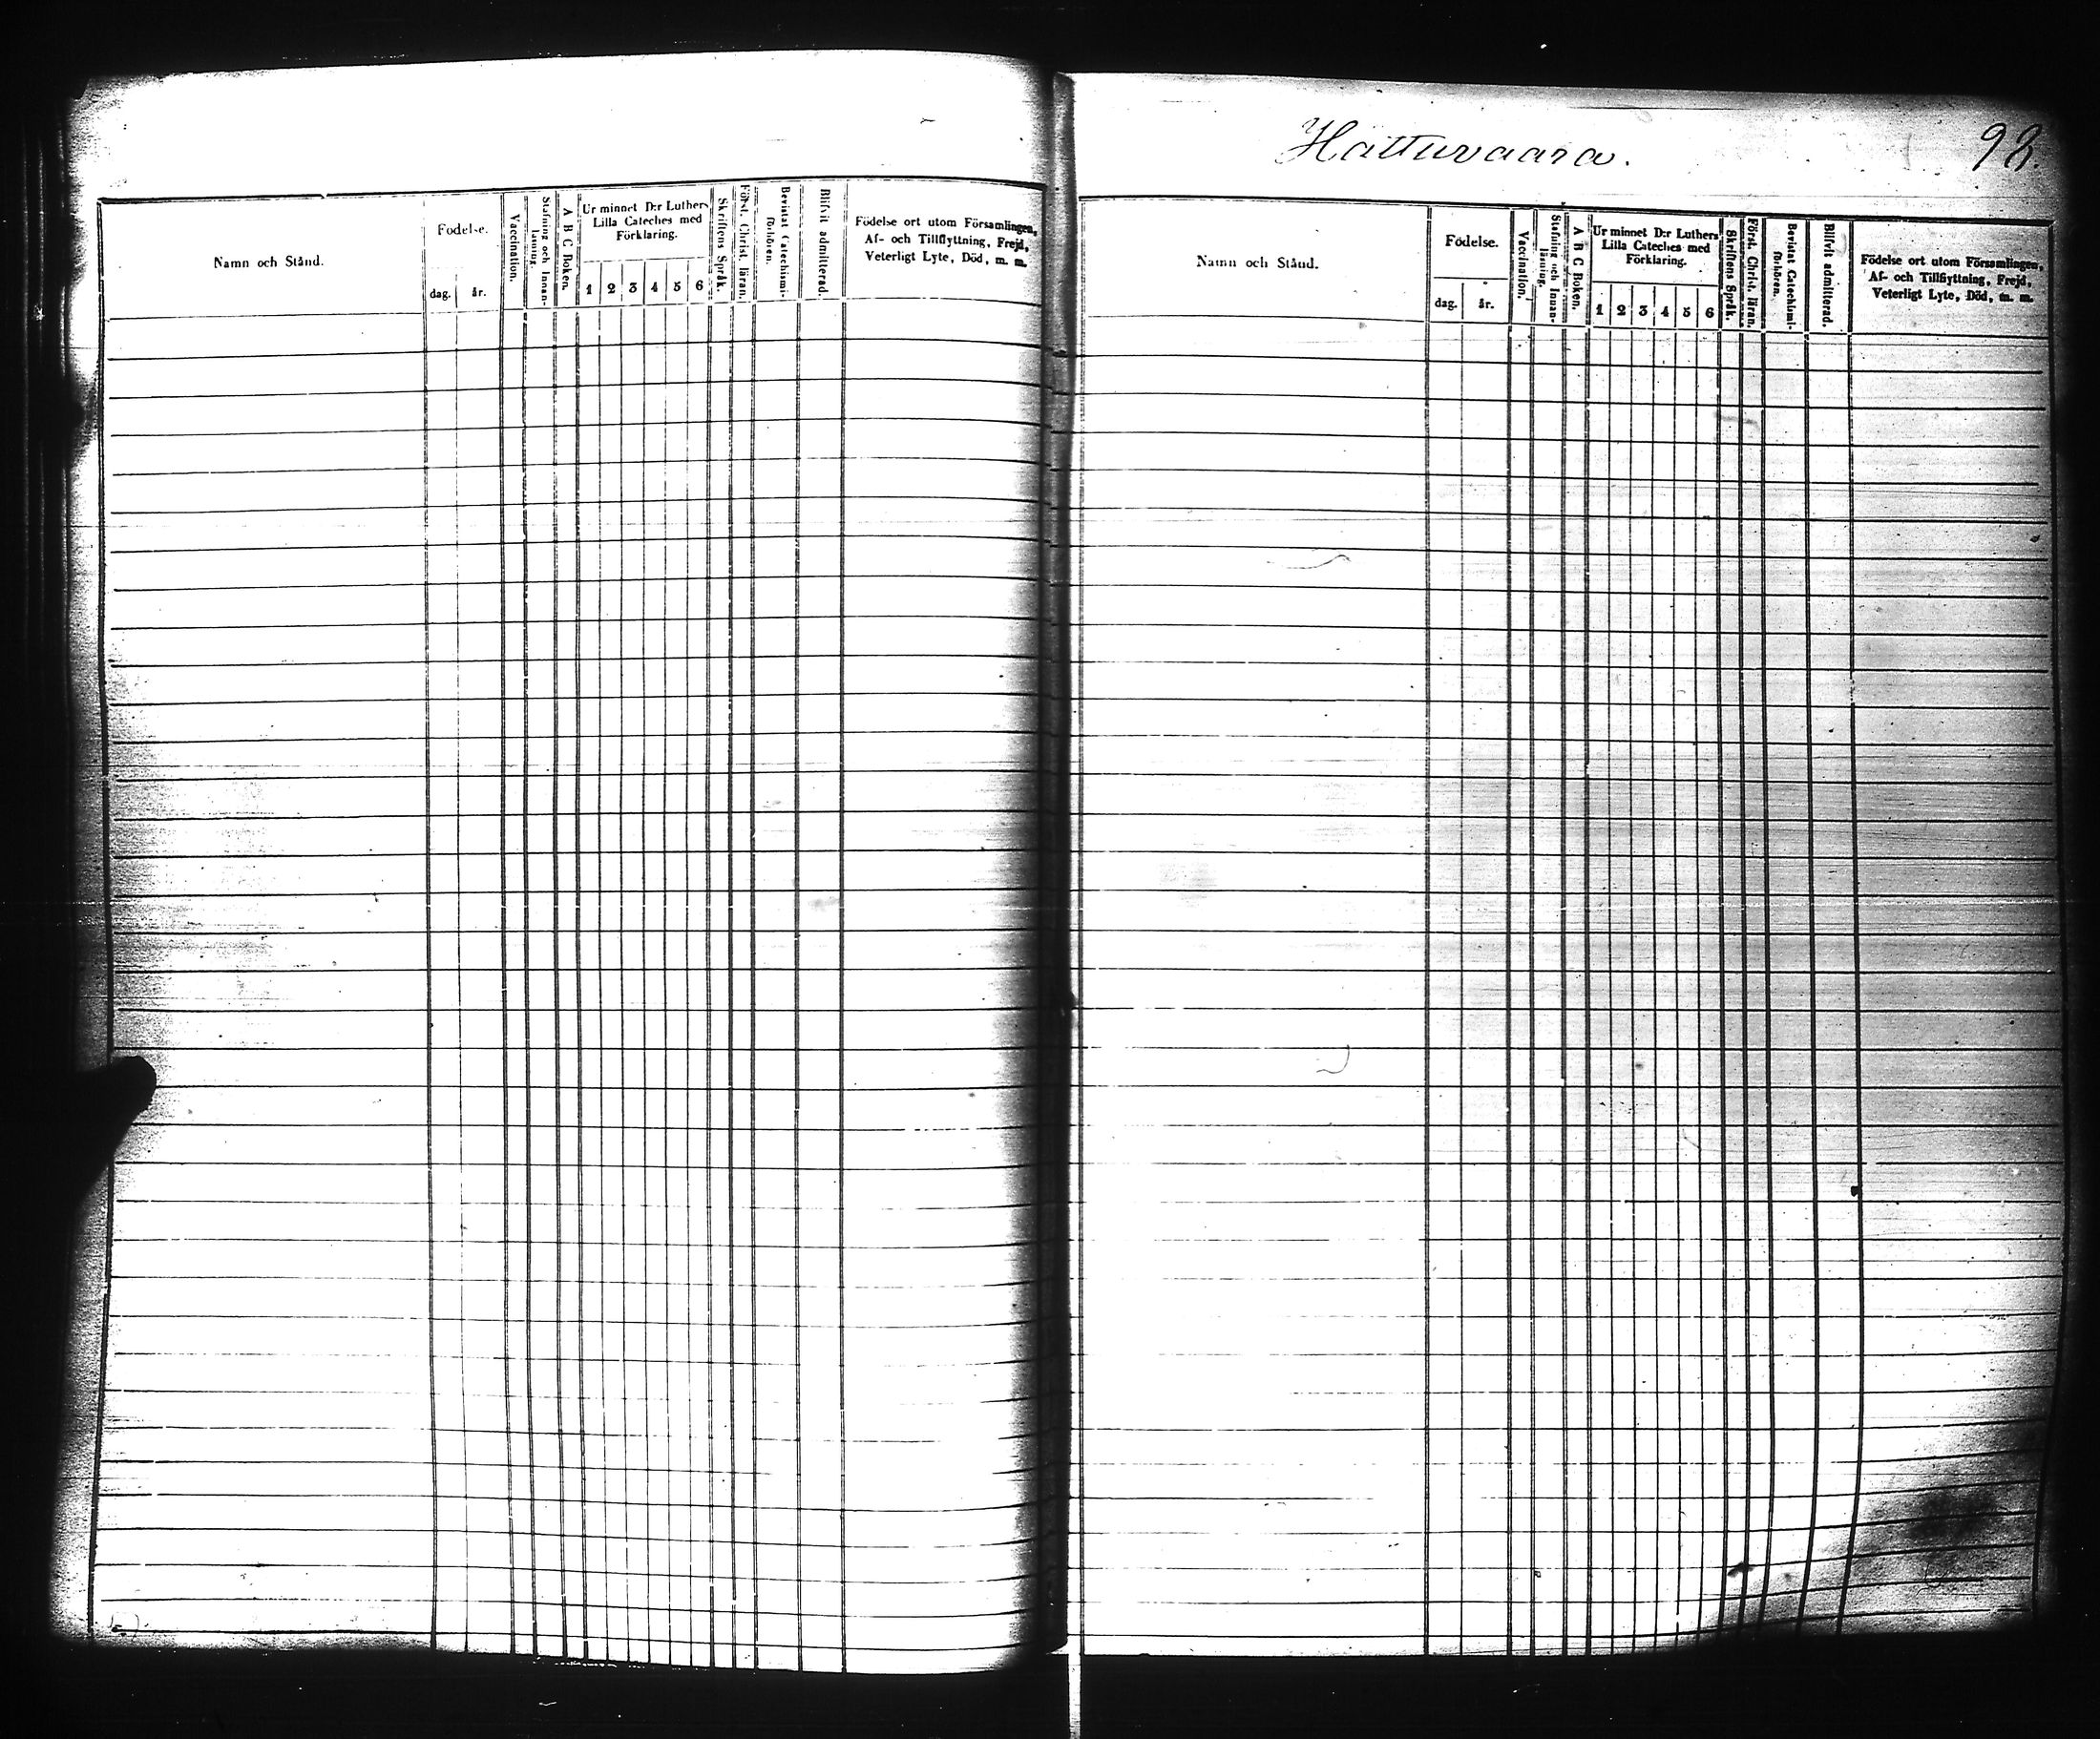 Namn och Stånd.
Födelse.
dag.
år.
Vaccination.
Stafning och Innan-
läsning.
A B C Boken.
Ur minnet D:r Luthers
Lilla Cateches med
Förklaring.
1 2 3 4 5 6
Skriftens Språk.
Först. Christ. läran.
Bevistat Catechismi-
förhören.
Blifvit admitterad.
Födelse ort utom Församlingen,
Af- och Tillflyttning, Frejd,
Veterligt Lyte, Död, m. m.
Hattuvaara.
98.
Namn och Stånd.
Födelse.
dag.
år.
Vaccination.
Stafning och Innan-
läsning.
A B C Boken.
Ur minnet D:r Luthers
Lilla Cateches med
Förklaring.
1 2 3 4 5 6
Skriftens Språk.
Först. Christ. läran.
Bevistat Catechismi-
förhören.
Blifvit admitterad.
Födelse ort utom Församlingen,
Af- och Tillflyttning, Frejd,
Veterligt Lyte, Död, m. m.